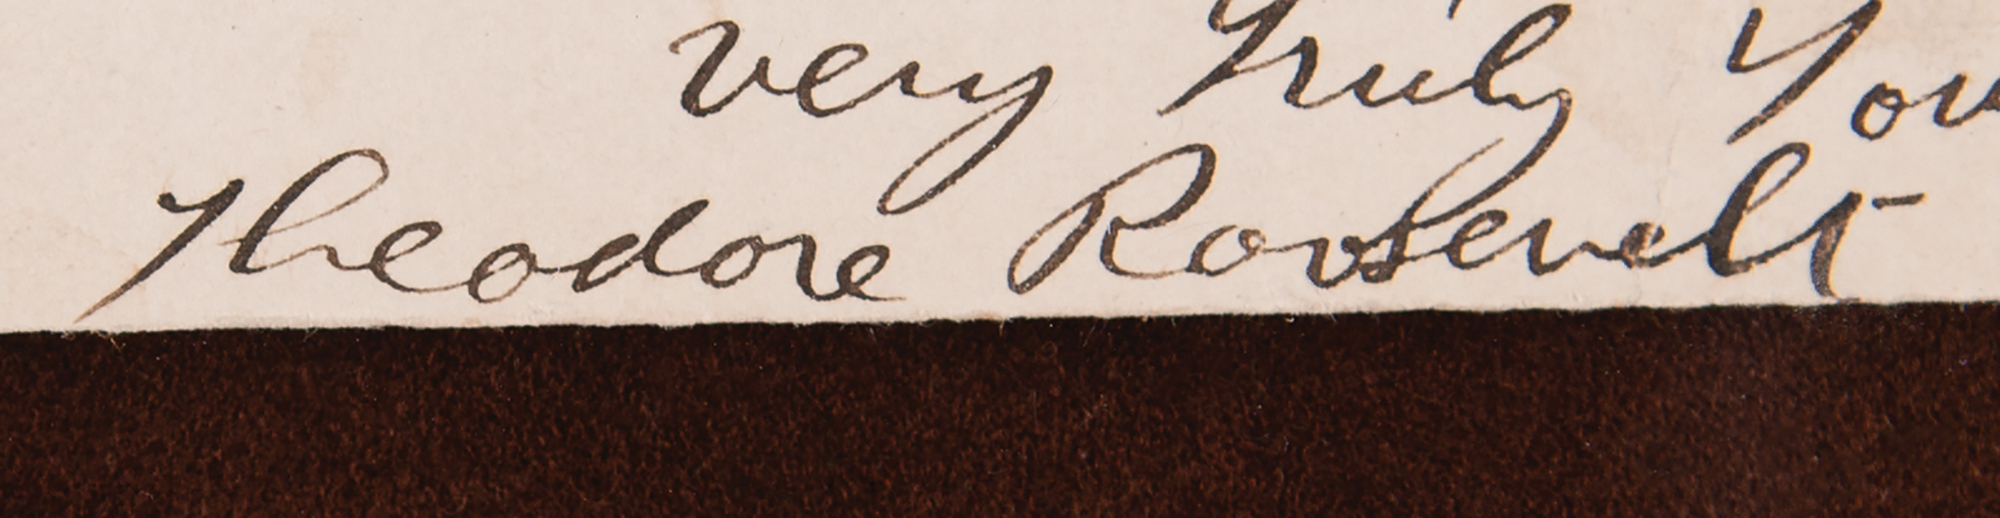 very truly You
Theodore Roosevelt